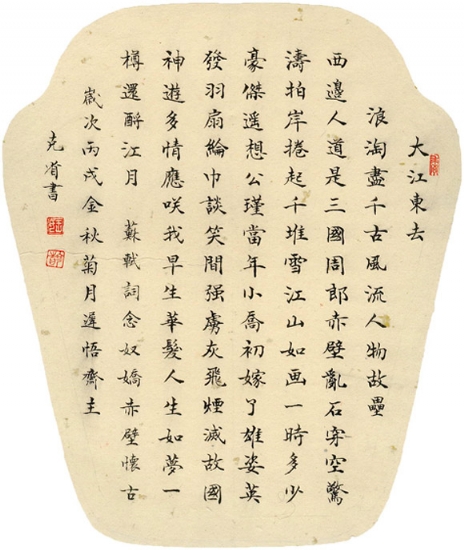 大江東去
浪淘盡千古風流人物故壘
西邊人道是三國周郎赤壁亂石穿空驚
濤拍岸捲起千堆雪江山如画一時多少
豪傑遥想公瑾當年小喬初嫁了雄姿英
發羽扇綸巾談笑間强虜灰飛煙滅故國
神遊多情應咲我早生華髮人生如夢一
樽還酹江月 蘇軾詞念奴嬌赤壁懷古
歲次丙戌金秋菊月遲悟齋主
克省書